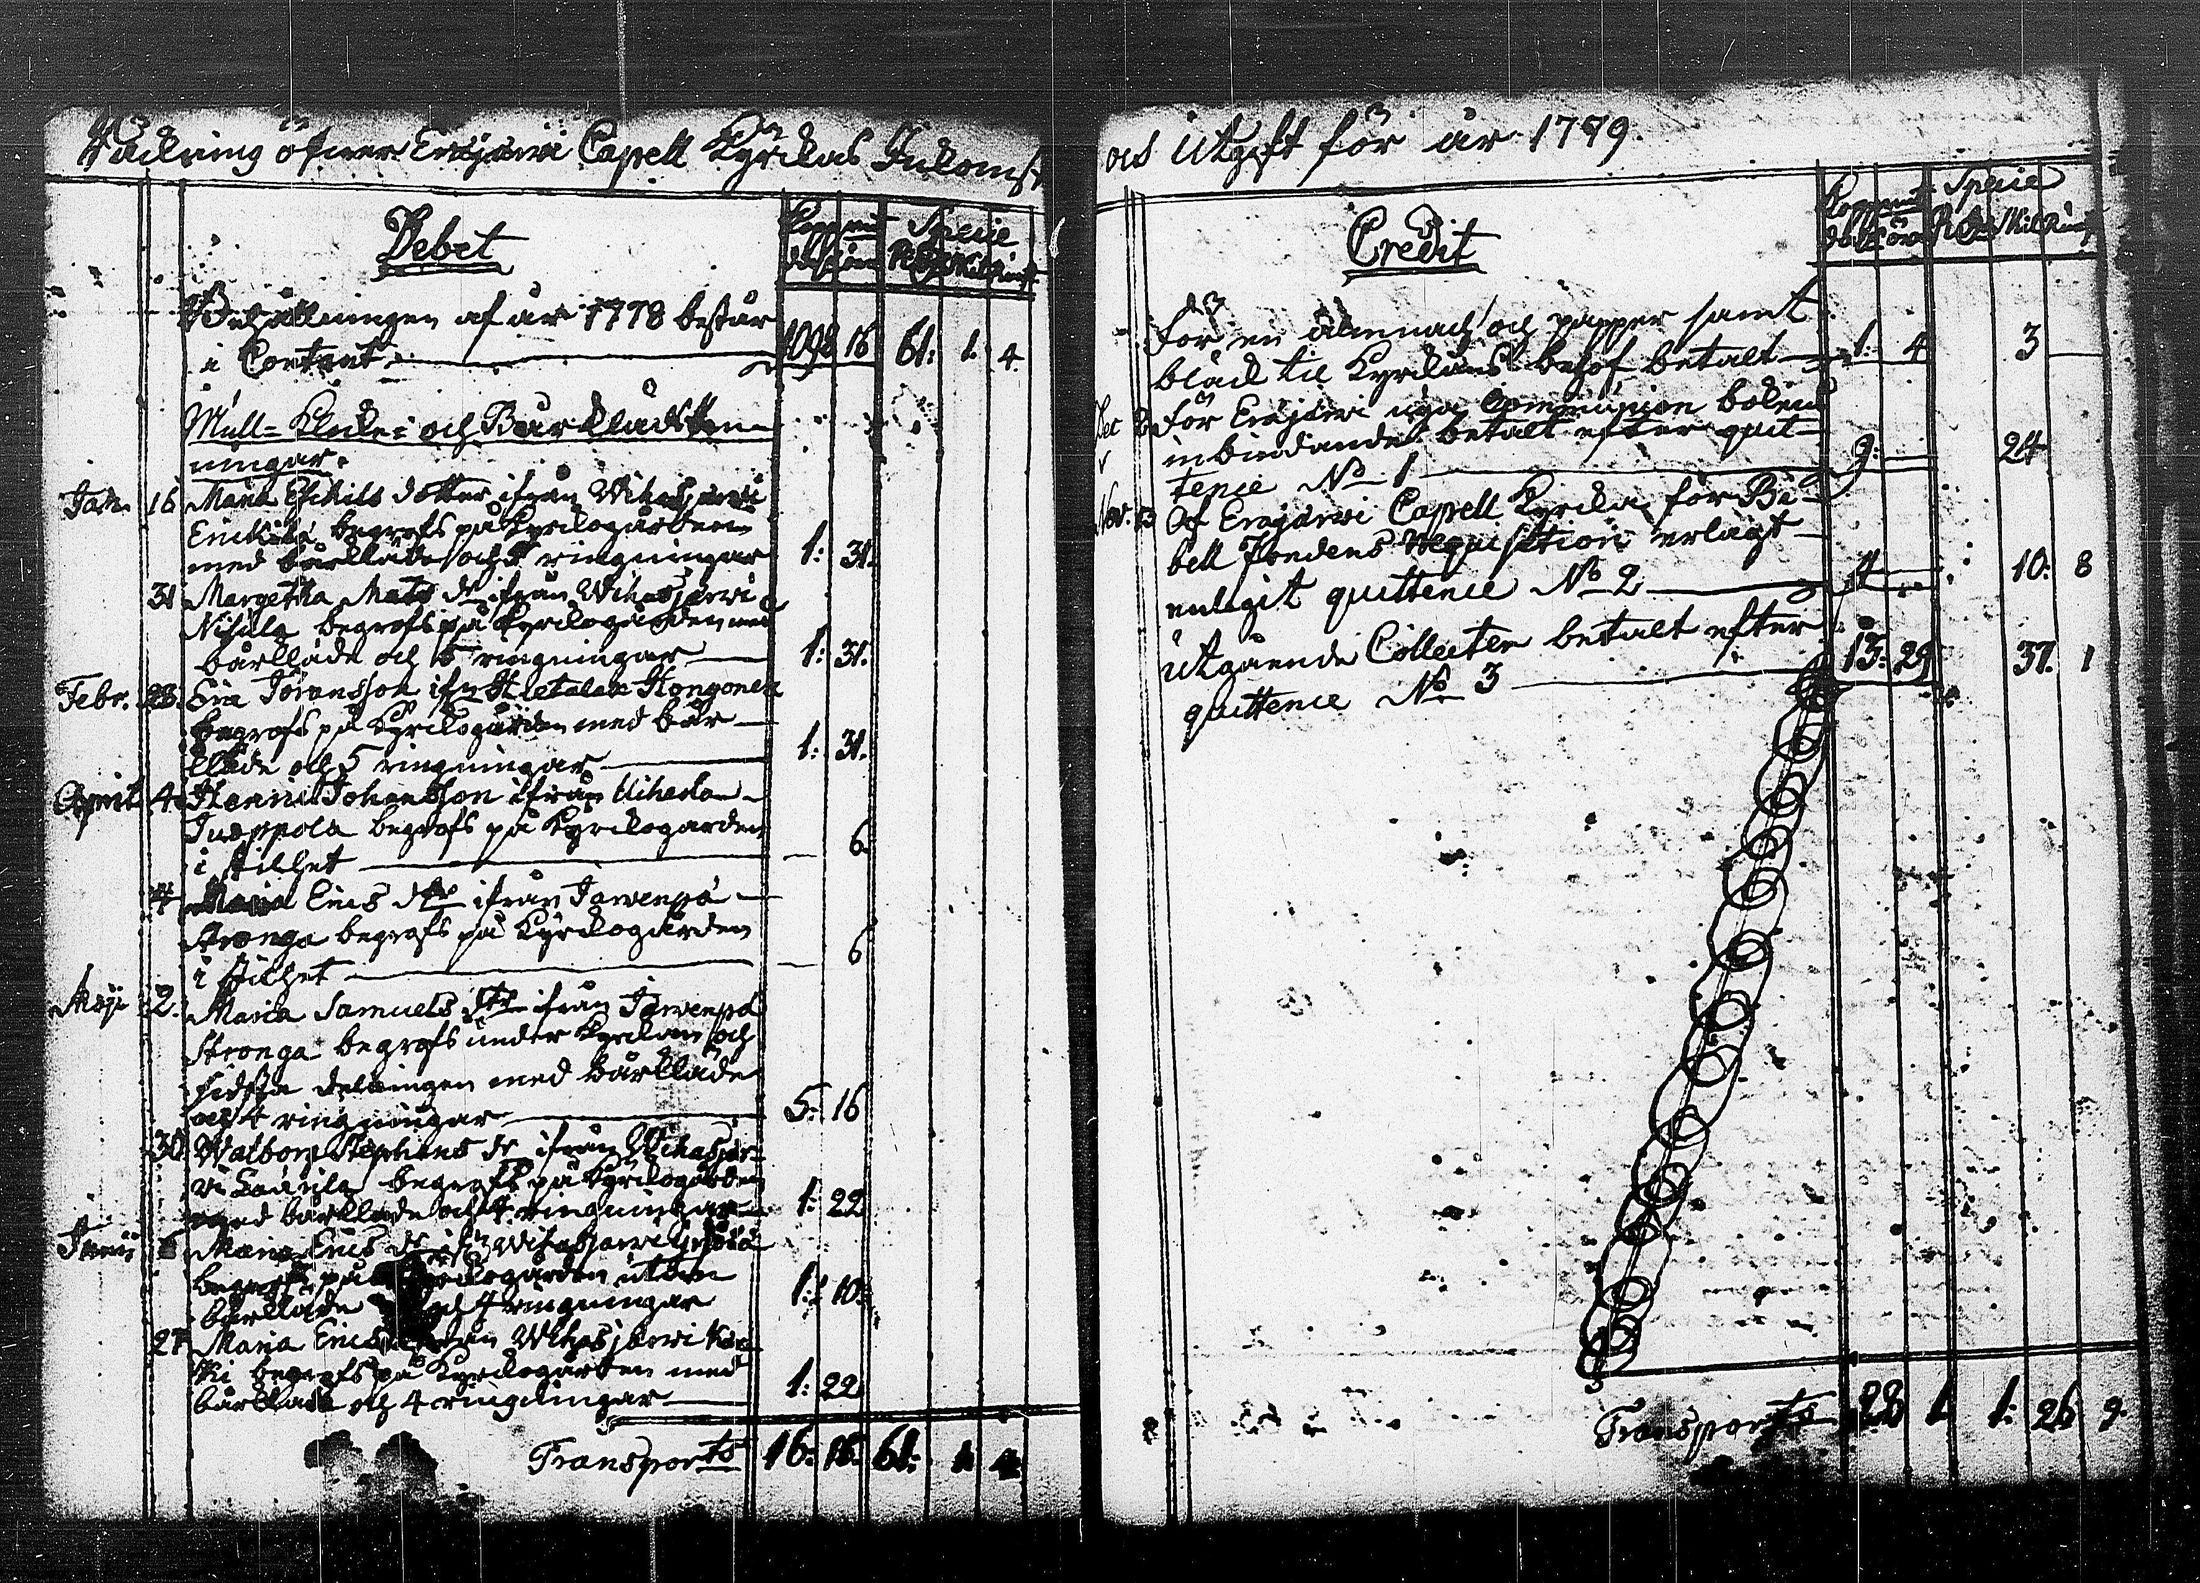 Räckning öfwer Erajärwi Capell Kyrckas Inkomst
Debet
Koppmt Specie
dal:r öre Rdr Skil Runst
Behållningen af år 1778 består
i Contant 1098 16 61: 1. 4
Mull= Klocke= och Bårklädspen-
ningar.
Jan. 16 Maria Eschils dotter ifrån Wihasjärwi
Erickilä begrofs på Kyrckogården
med bårkläde och 5 ringningar 1: 31.
31 Margetha Mats dr ifrån Wihasjärwi
Nihula begrofs på Kyrckogården med
bårkläde och 5 ringningar 1: 31.
Febr. 23. Eric Göransson ifrn Hietalax Hongonen
begrofs på Kyrckogården med bår-
kläde och 5 ringningar 1: 31.
April 4. Henric Johansson ifrån Uiherla
Juoppola begrofs på Kyrckogården
i stillhet 6.
4 Maria Erics dtr ifrån Jarwenpä
Aronga begrofs på Kyrckogården
i stillhet 6
Maji 2. Maria Samuels dtr ifrån Järwenpä
Aronga begrofs under Kyrckan och
sidsta delningen med bårkläde
och 4 ringningar 5: 16
30 Walborg Stephans dr ifrån Wihasjär-
wi Laurila begrofs på Kyrckogården
med bårkläde och 4 ringningar 1: 22
Junij Maria Erics dr ifrn Wihasjärwi
begrofs på Kyrckogården utom
bårkläde och 4 ringningar 1: 10:
27 Maria Erics ifrån Wihasjärwi
begrofs på Kyrckogården med
bårkläde och 4 ringningar 1: 22
Transporto 16: 15. 61: 1 4
och Utgift för år 1779.
Credit
Koppmt Specie
dal:r öre Rdr Skil Runst
För en allmanach och papper samt
bläck til Kyrckans behof betalt 1: 4 3
För Erajärwi nya Communion bokens
inbindande betalt efter quit-
tence No 1 9: 24
Nov. 13 Af Erajärwi Capell Kyrcka för Bi-
bell Fondens Requisition erlagt
enligit quittence No 2 4 10: 8
Utgående Collecter betalt efter
quittence No 3 13: 29 37. 1
Transporto 28 1 1: 26 9.